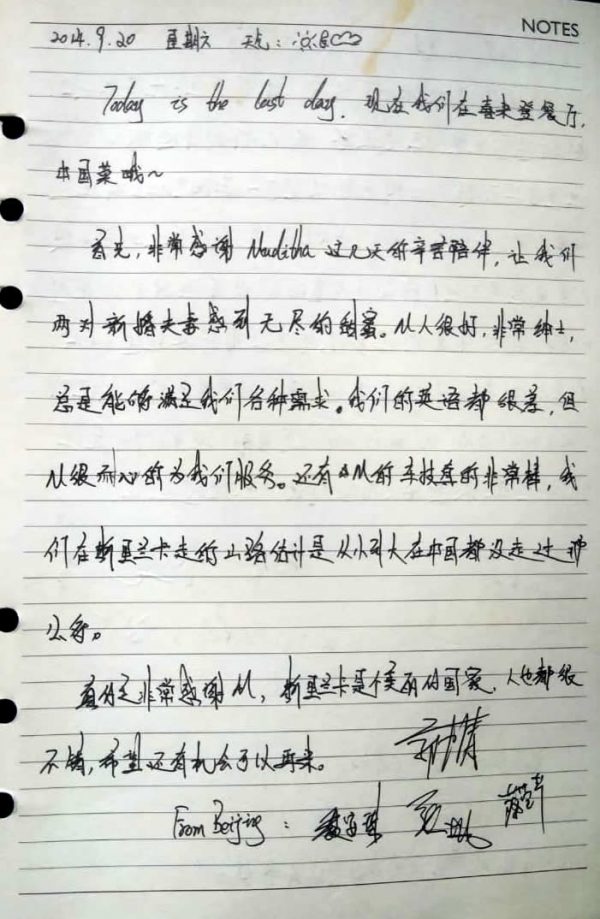 NOTES
2014.9.20 星期六 天气：
Today is the last day. 现在我们在喜来登餐厅，
中国菜哦～
首先，非常感谢Naditha这几天的辛苦陪伴，让我们
两对新婚夫妻感到无尽的甜蜜。M人很好，非常绅士，
总是能够满足我们各种需求。我们的英语都很差，但
M很耐心的为我们服务。还有M的车技真的非常棒，我
们在斯里兰卡走的山路估计是从小到大在中国都没走过那
么奇。
真的是非常感谢M，斯里兰卡是个美丽的国家，人也都很
不错，希望还有机会可以再来。
From Beijing：